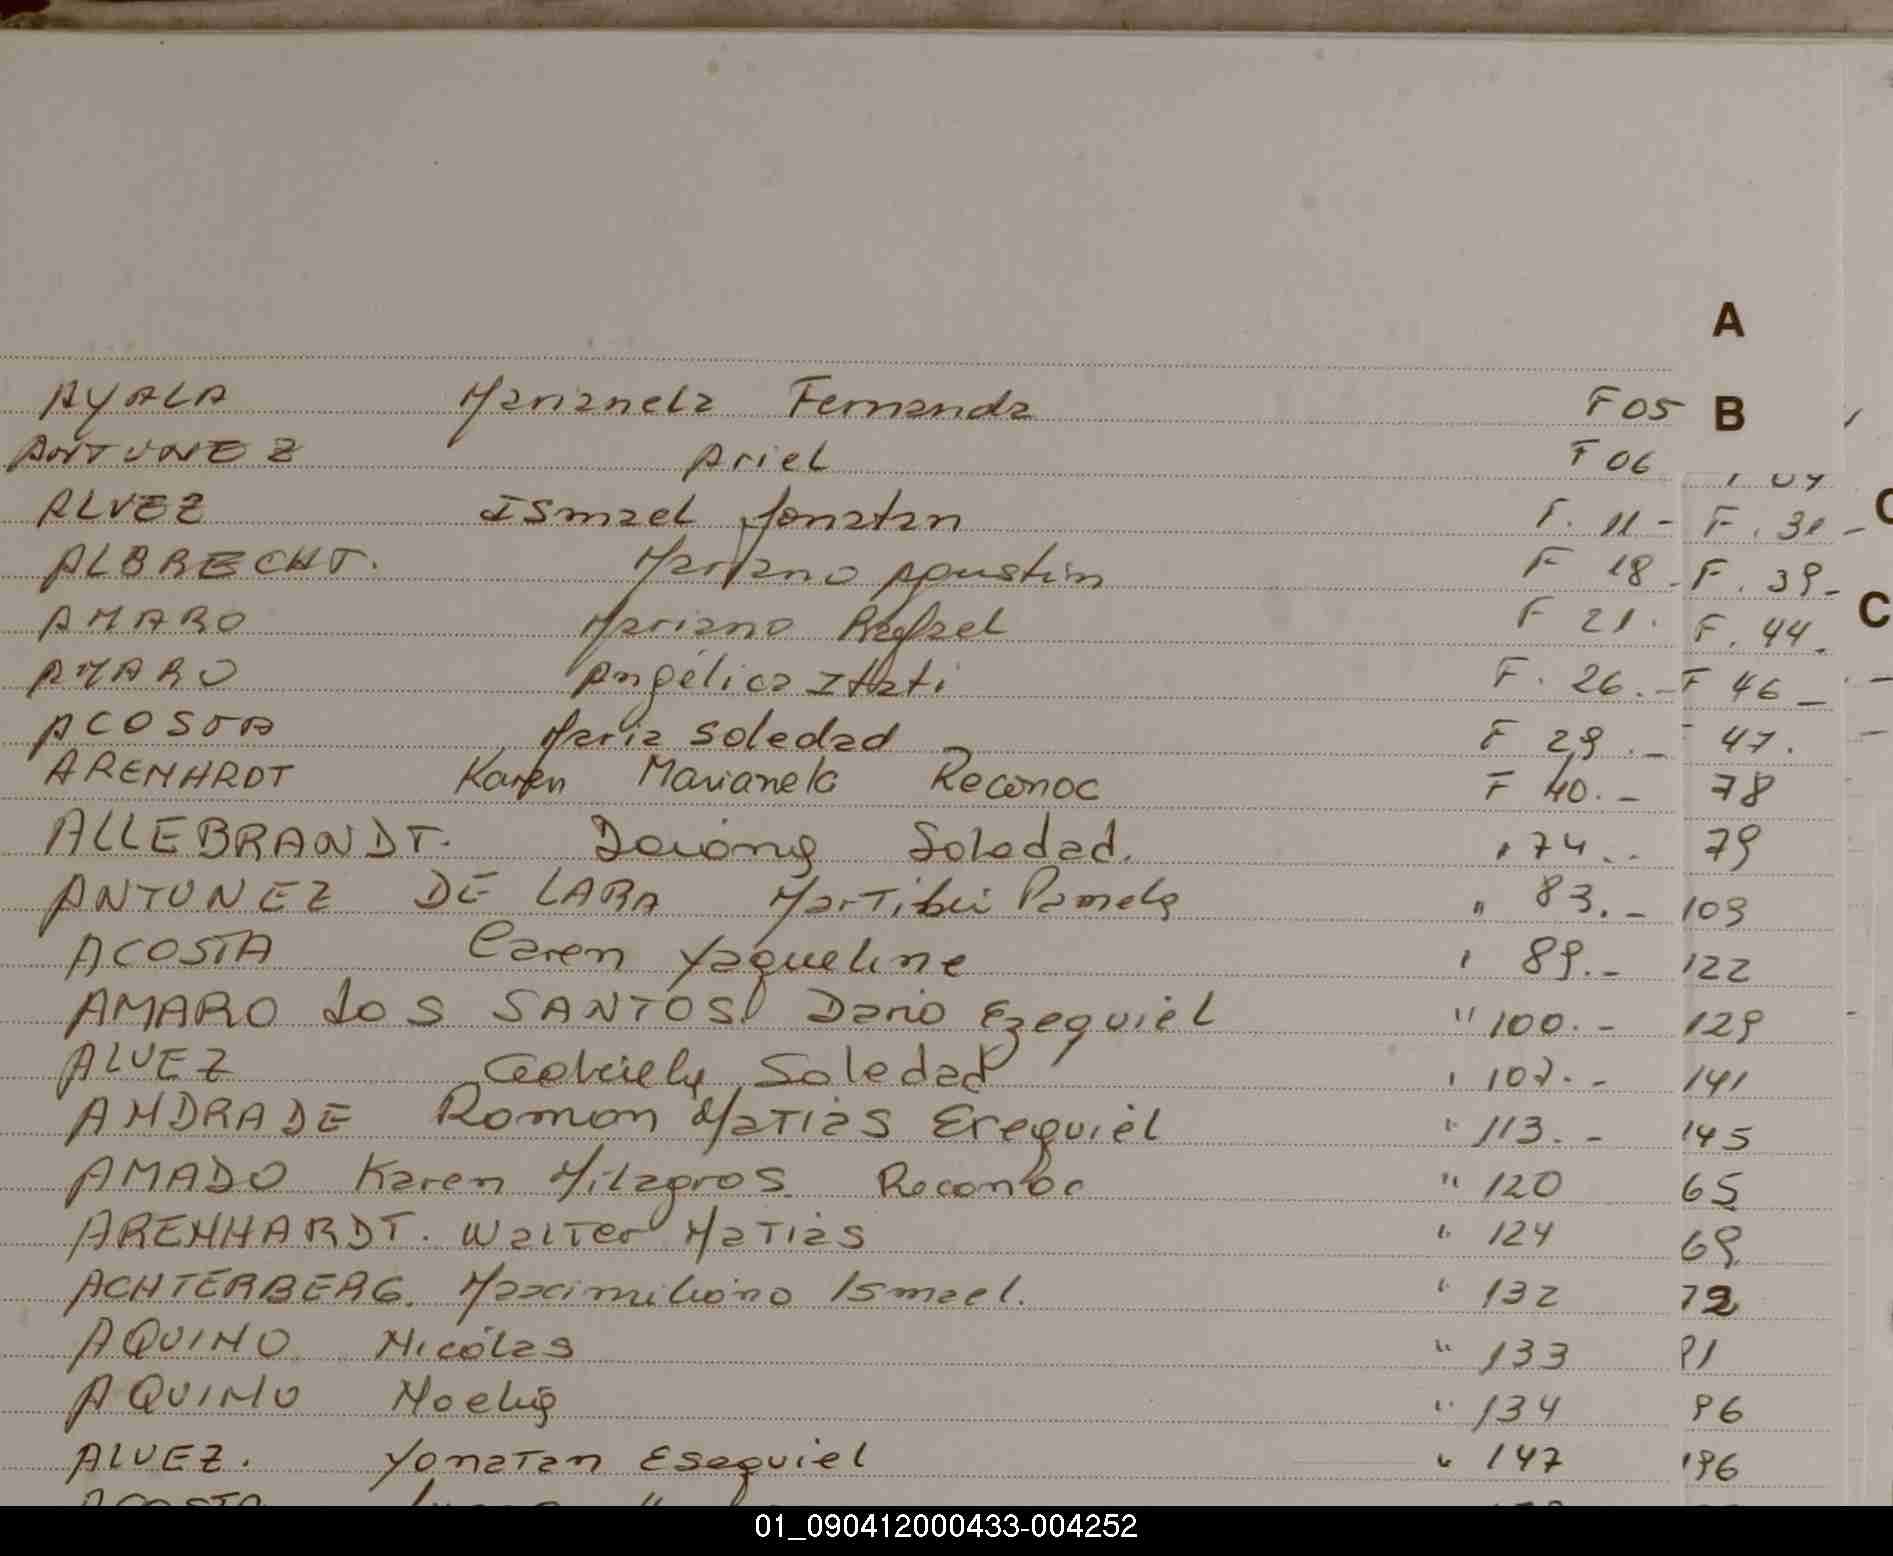 A
AYALA Marianela Fernanda F 05 B
ANTUNEZ Ariel F 06
ALVEZ Ismael Jonatan F. 11 - F. 31 - C
ALBRECHT. Mariano Agustin F 18 - F. 39 -
AMARO Mariano Rafael F 21. F. 44. C
AMARO Angélica Itati F. 26. - F 46 -
ACOSTA Maria Soledad F 29. - 47.
ARENHARDT Karen Marianela Reconoc F 40. - 78
ALLEBRANDT. Soledad. " 74.. 79
ANTUNEZ DE LARA Pamela " 83. - 109
ACOSTA Caren Yaqueline " 89. - 122
AMARO dos SANTOS Dario Ezequiel " 100. - 129
ALVEZ Gabriela Soledad " 107. - 141
ANDRADE Roman Matias Ezequiel " 113. - 145
AMADO Karen Milagros Reconoc " 120 65
ARENHARDT. Walter Matias " 124 69
ACHTERBERG. Maximiliano Ismael. " 132 72
AQUINO Nicólas " 133 91
AQUINO Noelia " 134 96
ALVEZ. Yonatan Esequiel " 147 196
ACOSTA
01_090412000433-004252